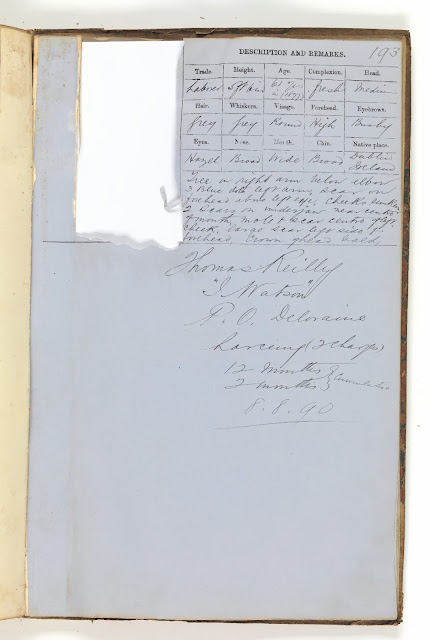 193
DESCRIPTION AND REMARKS.
Trade. Height. Age. Complexion. Head.
Laborer 5ft 61 yrs in (1877) fresh Medium
Hair. Whiskers. Visage. Forehead. Eyebrows.
Grey Grey Round High Bushy
Eyes. Nose. Mouth. Chin. Native place.
Hazel Broad Wide Broad Dublin Ireland
Tree on right arm below elbow
3 Blue dots left arm, scar on
forehead above left eye, cheeks sunken
2 Scars on underjaw near centre
of mouth, mole & scar centre of left
cheek, large scar left side of
forehead, Crown of head bald
Thomas Reilly
"J Watson"
P. O. Deloraine
Larceny (2 charges)
12 Months } Cumulative
2 months }
8. 8. 90